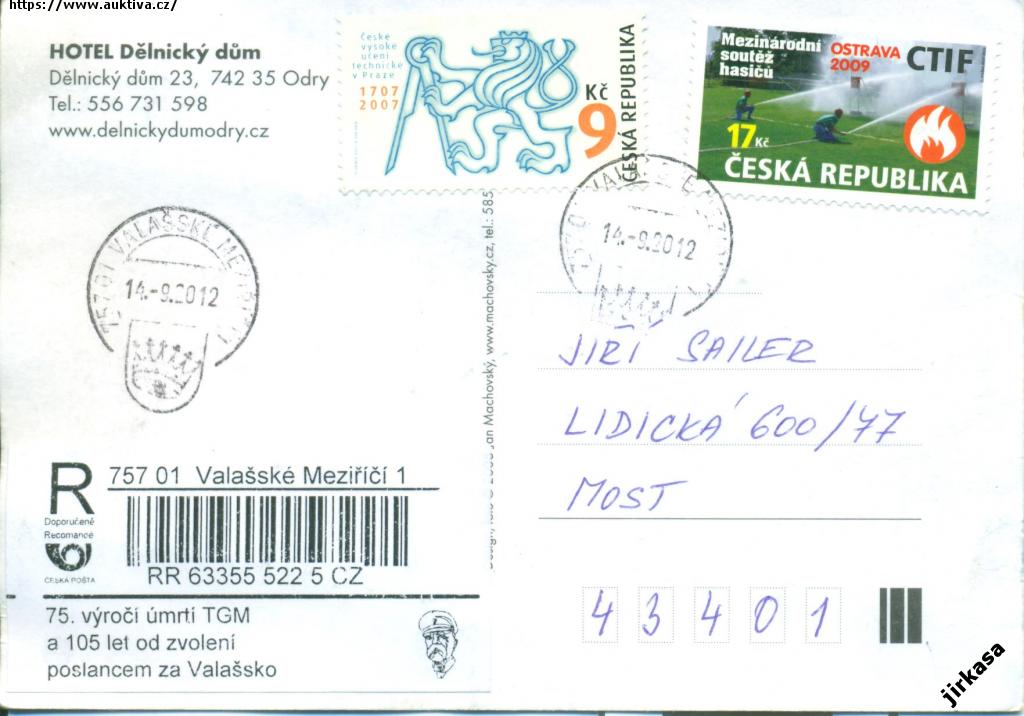 https://www.auktiva.cz/
HOTEL Dělnický dům
Dělnický dům 23, 742 35 Odry
Tel.: 556 731 598
www.delnickydumodry.cz
České
vysoké
učení
technické
v Praze
1707
2007
9 Kč
ČESKÁ REPUBLIKA
Mezinárodní
soutěž
hasičů
OSTRAVA
2009
CTIF
17 Kč
ČESKÁ REPUBLIKA
757 01 VALAŠSKÉ MEZIŘÍČÍ 1
14.-9.2012
757 01 VALAŠSKÉ MEZIŘÍČÍ 1
14.-9.2012
an Machovský, www.machovsky.cz, tel.: 585
JIŘÍ SAILER
LIDICKÁ 600/77
MOST
43401
R
Doporučeně
Recomandé
ČESKÁ POŠTA
757 01 Valašské Meziříčí 1
RR 63355 522 5 CZ
75. výročí úmrtí TGM
a 105 let od zvolení
poslancem za Valašsko
jirkasa